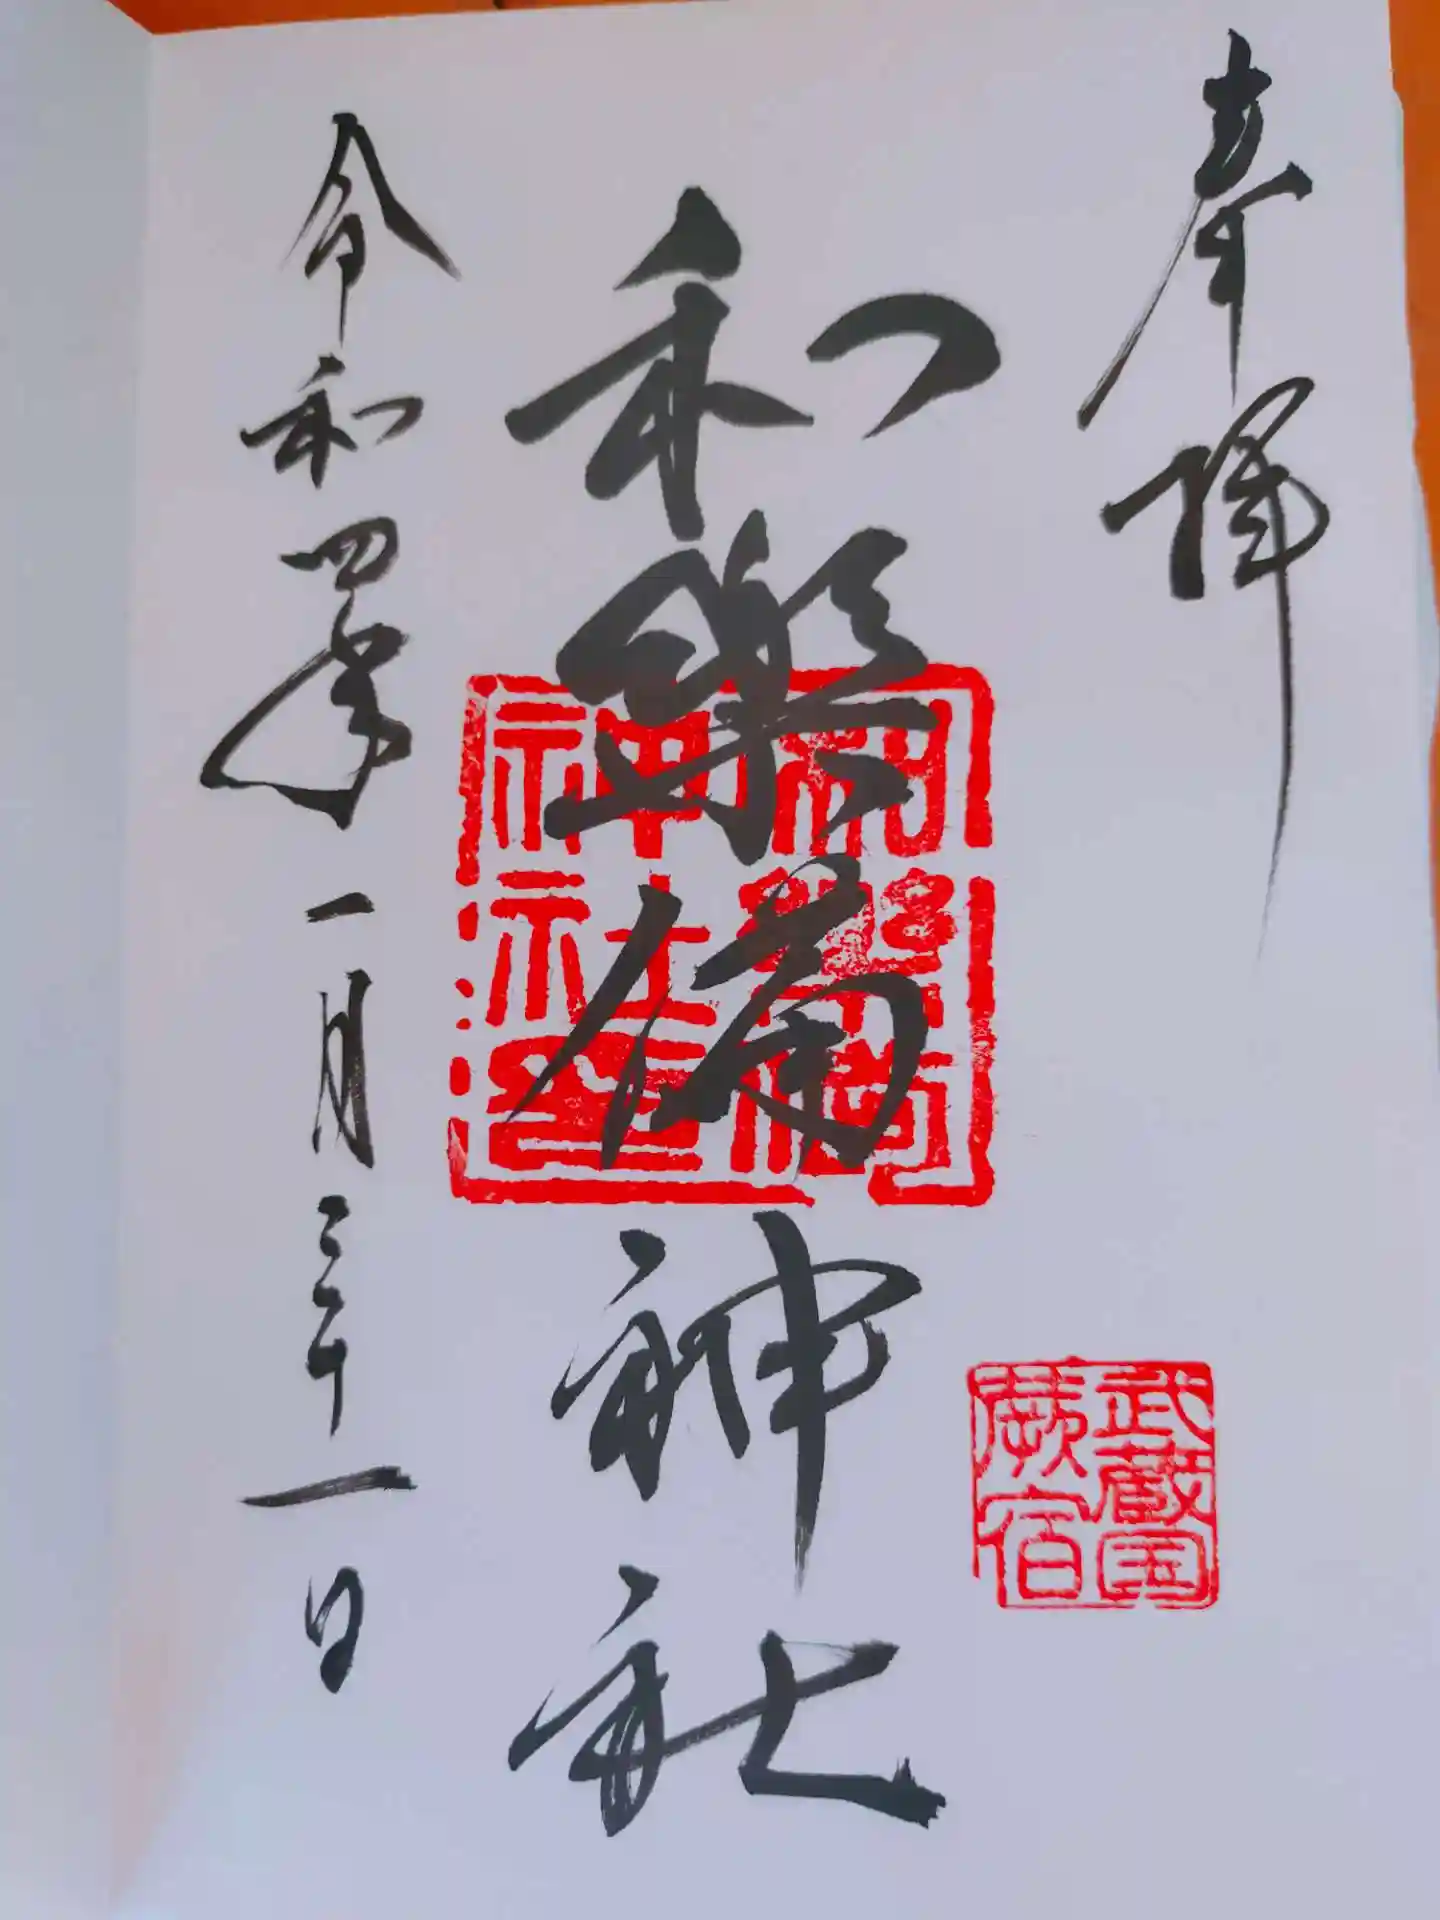 奉拝
武蔵国
蕨宿
和樂備神社
和樂備
神社
令和四年一月三十一日